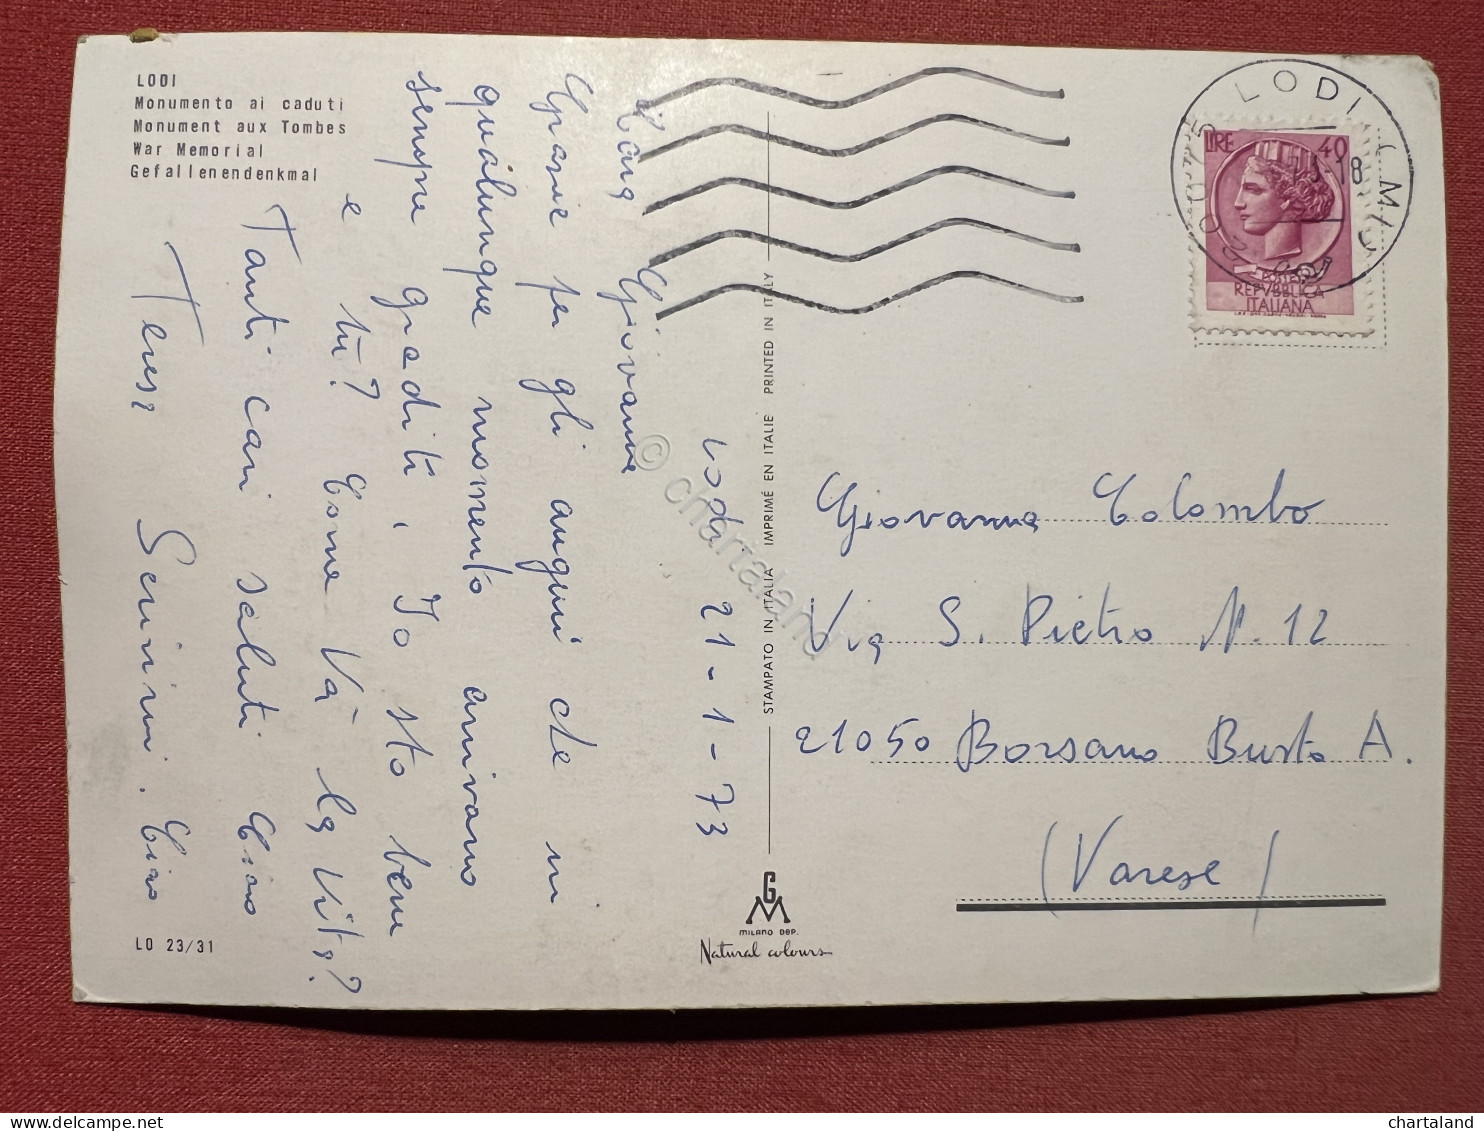 LODI
Monumento ai caduti
Monument aux Tombes
War Memorial
Gefallenendenkmal
Lodi 21-1-73
Cara Giovanna
Grazie per gli auguri che in
qualunque momento arrivano
sempre graditi, Io sto bene
e tu? Come Và la Vita?
Tanti cari saluti Ciao
Teresa Ciao
LO 23/31
STAMPATO IN ITALIA IMPRIMÉ EN ITALIE PRINTED IN ITALY
GM
MILANO DEP.
Natural colours
LODI (MI)
LIRE 40
POSTE
REPVBBLICA
ITALIANA
Giovanna Colombo
Via S. Pietro N. 12
21050 Borsano Busto A.
(Varese)
© chartaland
chartaland